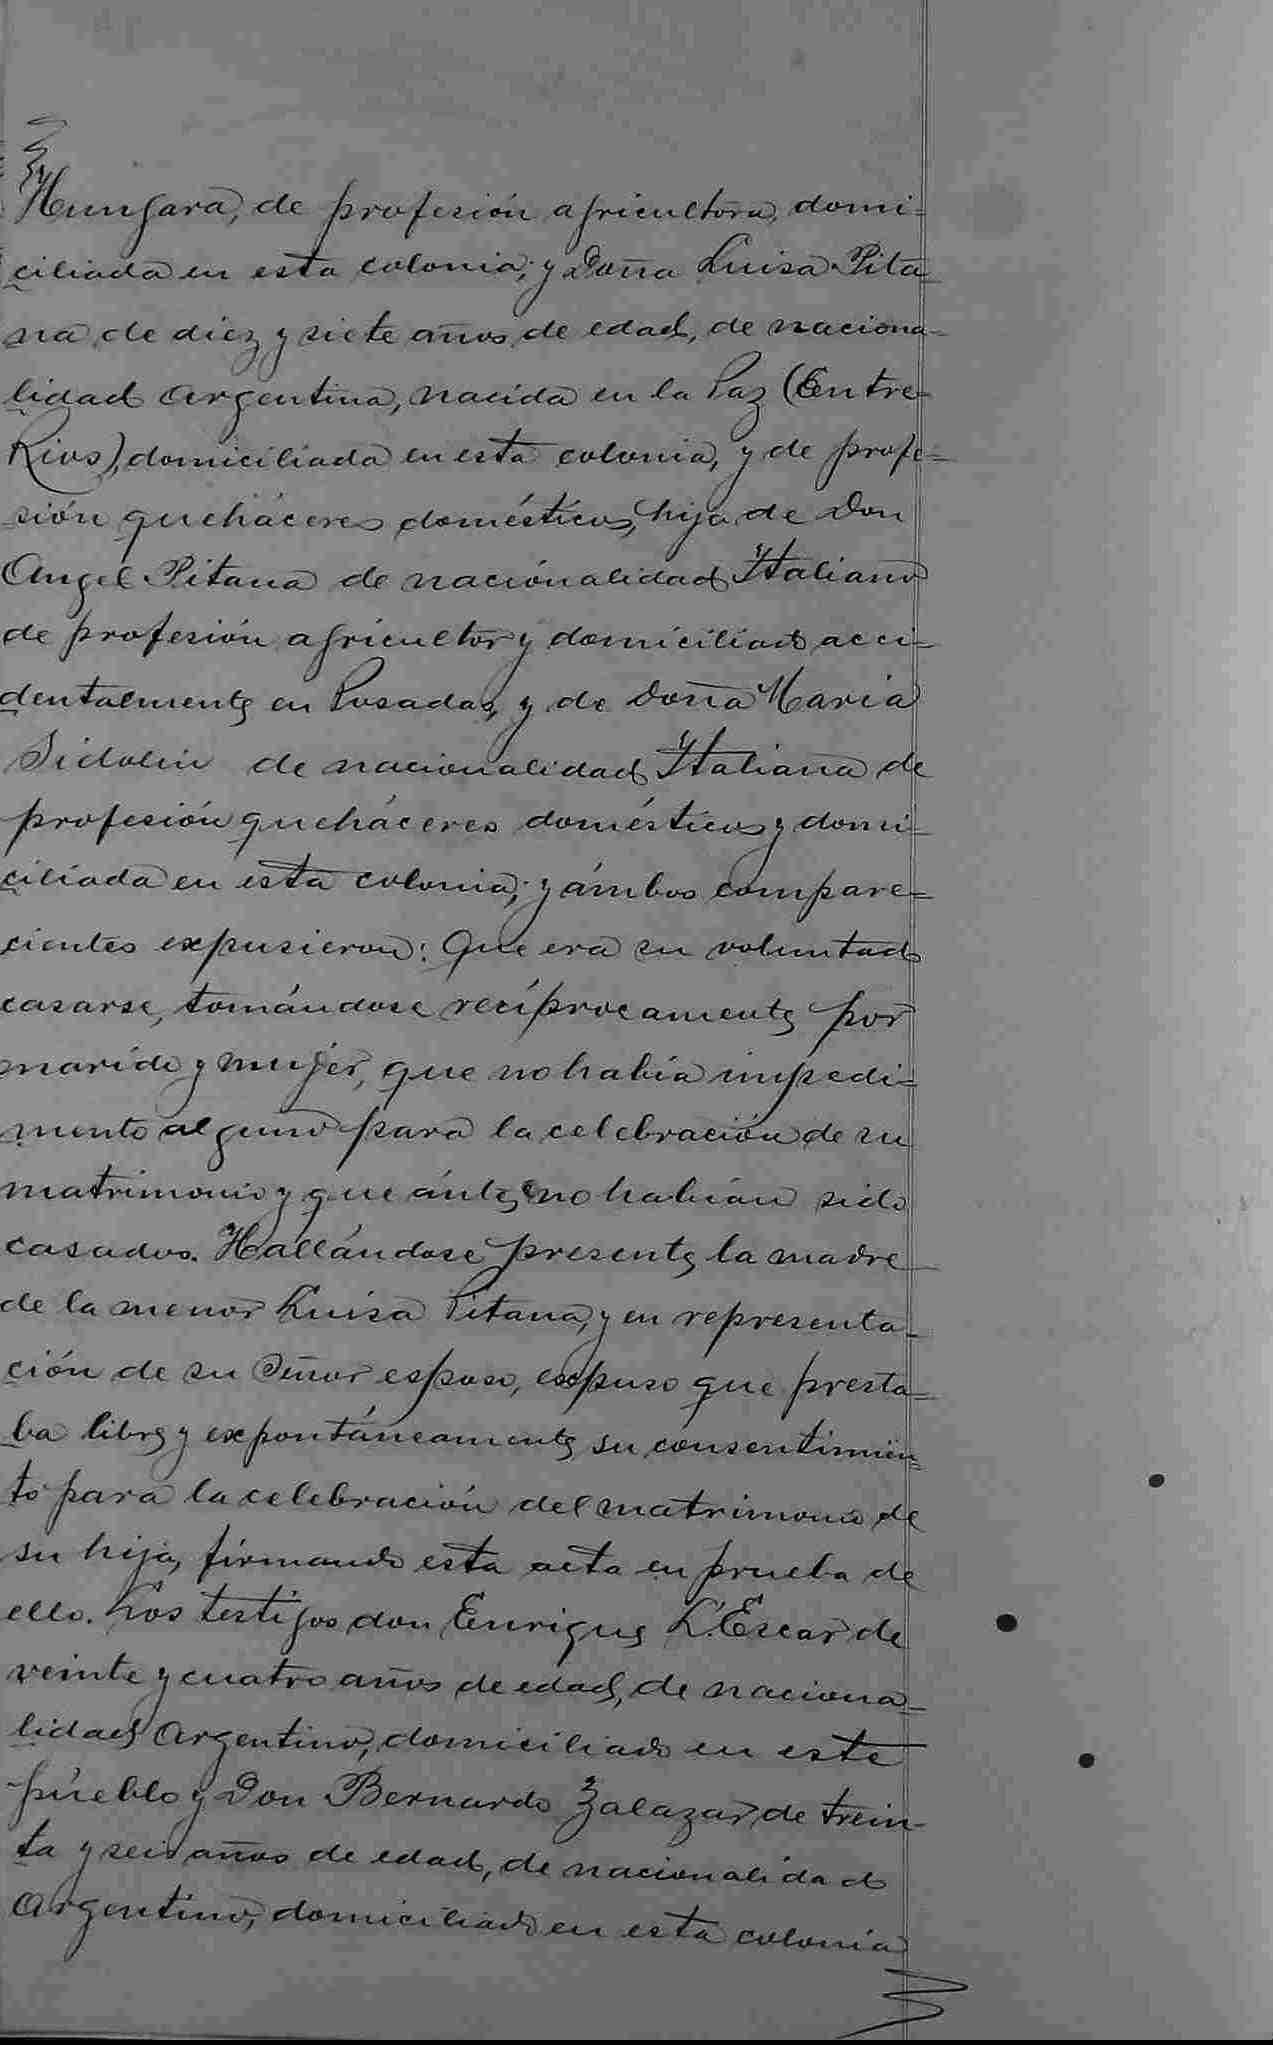 Hungara, de profesión agricultora, domi-
ciliada en esta colonia; y Doña Luisa Pita
na de diez y siete años de edad, de naciona-
lidad Argentina, nacida en la Paz (Entre-
Rios), domiciliada en esta colonia, y de profe-
sión queháceres domésticos, hija de Don
Angel Pitana de naciónalidad Italiano
de profesión agricultor y domiciliado acci-
dentalmente en Posadas, y de doña Maria
Sidolin de nacionalidad Italiana de
profesión queháceres domésticos y domi-
ciliada en esta colonia; y ámbos compare-
cientes expusieron: Que era su voluntad
casarse, tomándose recíprocamente por
marido y mujer, que no había impedi-
mento alguno para la celebración de su
matrimonio y que ántes no habían sido
casados. Hallándose presente la madre
de la menor Luisa Pitana, y en representa-
ción de su Señor esposo, expuso que presta-
ba libre y expontáneamente su consentimien-
to para la celebración del matrimonio de
su hija, firmando esta acta en prueba de
ello. Los testigos don Enrique L'Escar de
veinte y cuatro años de edad, de naciona-
lidad Argentino, domiciliado en este
pueblo y Don Bernardo Zalazar de trein-
ta y seis años de edad, de nacionalidad
Argentino, domiciliado en esta colonia